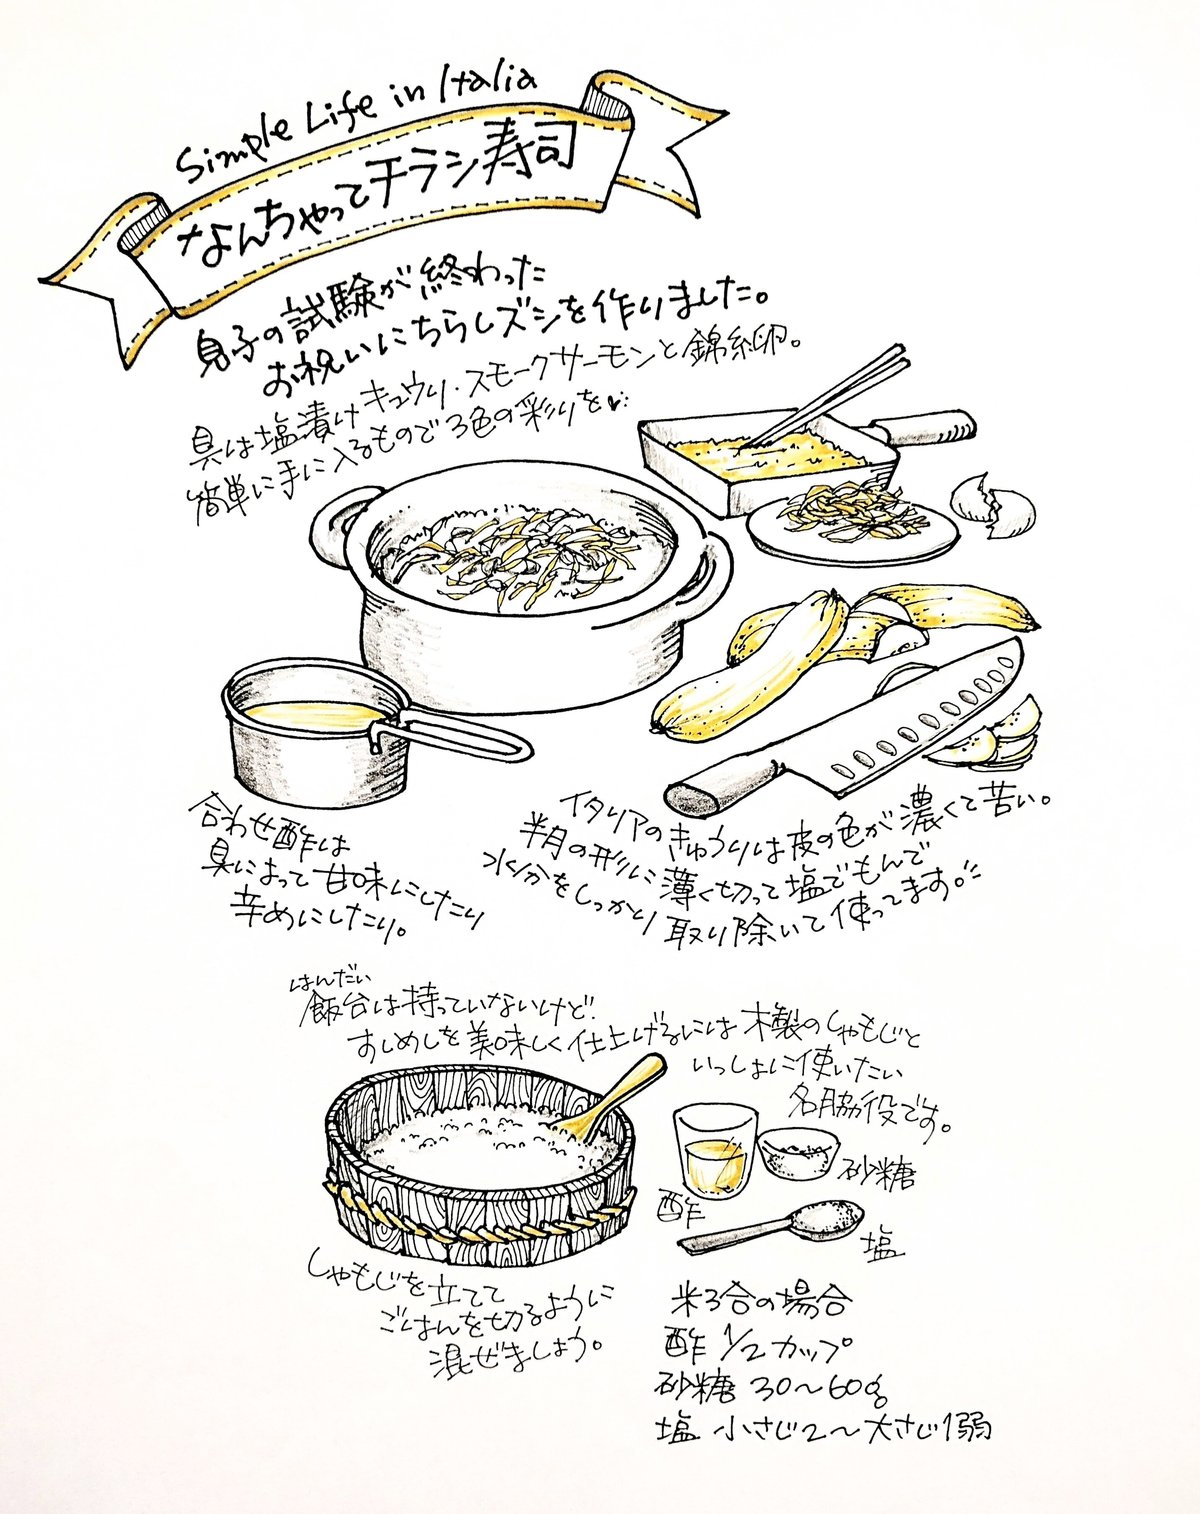 Simple Life in Italia
なんちゃってチラシ寿司
息子の試験が終わった
お祝いにちらしズシを作りました。
具は塩漬けキュウリ・スモークサーモンと錦糸卵。
簡単に手に入るもので3色の彩りを♥
合わせ酢は
具によって甘味にしたり
辛めにしたり。
イタリアのきゅうりは皮の色が濃くて苦い。
半月の形に薄く切って塩でもんで
水分をしっかり取り除いて使ってます。
はんだい
飯台は持っていないけど
すしめしを美味しく仕上げるには木製のしゃもじと
いっしょに使いたい
名脇役です。
酢
砂糖
塩
しゃもじを立てて
ごはんを切るように
混ぜましょう。
米3合の場合
酢 1/2カップ
砂糖 30〜60g
塩 小さじ2〜大さじ1弱